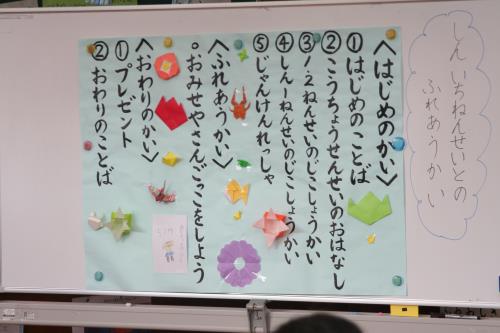 しん いちねんせいとの
ふれあうかい
〈はじめのかい〉
①はじめのことば
②こうちょうせんせいのおはなし
③1・2ねんせいのじこしょうかい
④しん一ねんせいのじこしょうかい
⑤じゃんけんれっしゃ
〈ふれあうかい〉
。おみせやさんごっこをしよう
〈おわりのかい〉
①プレゼント
②おわりのことば